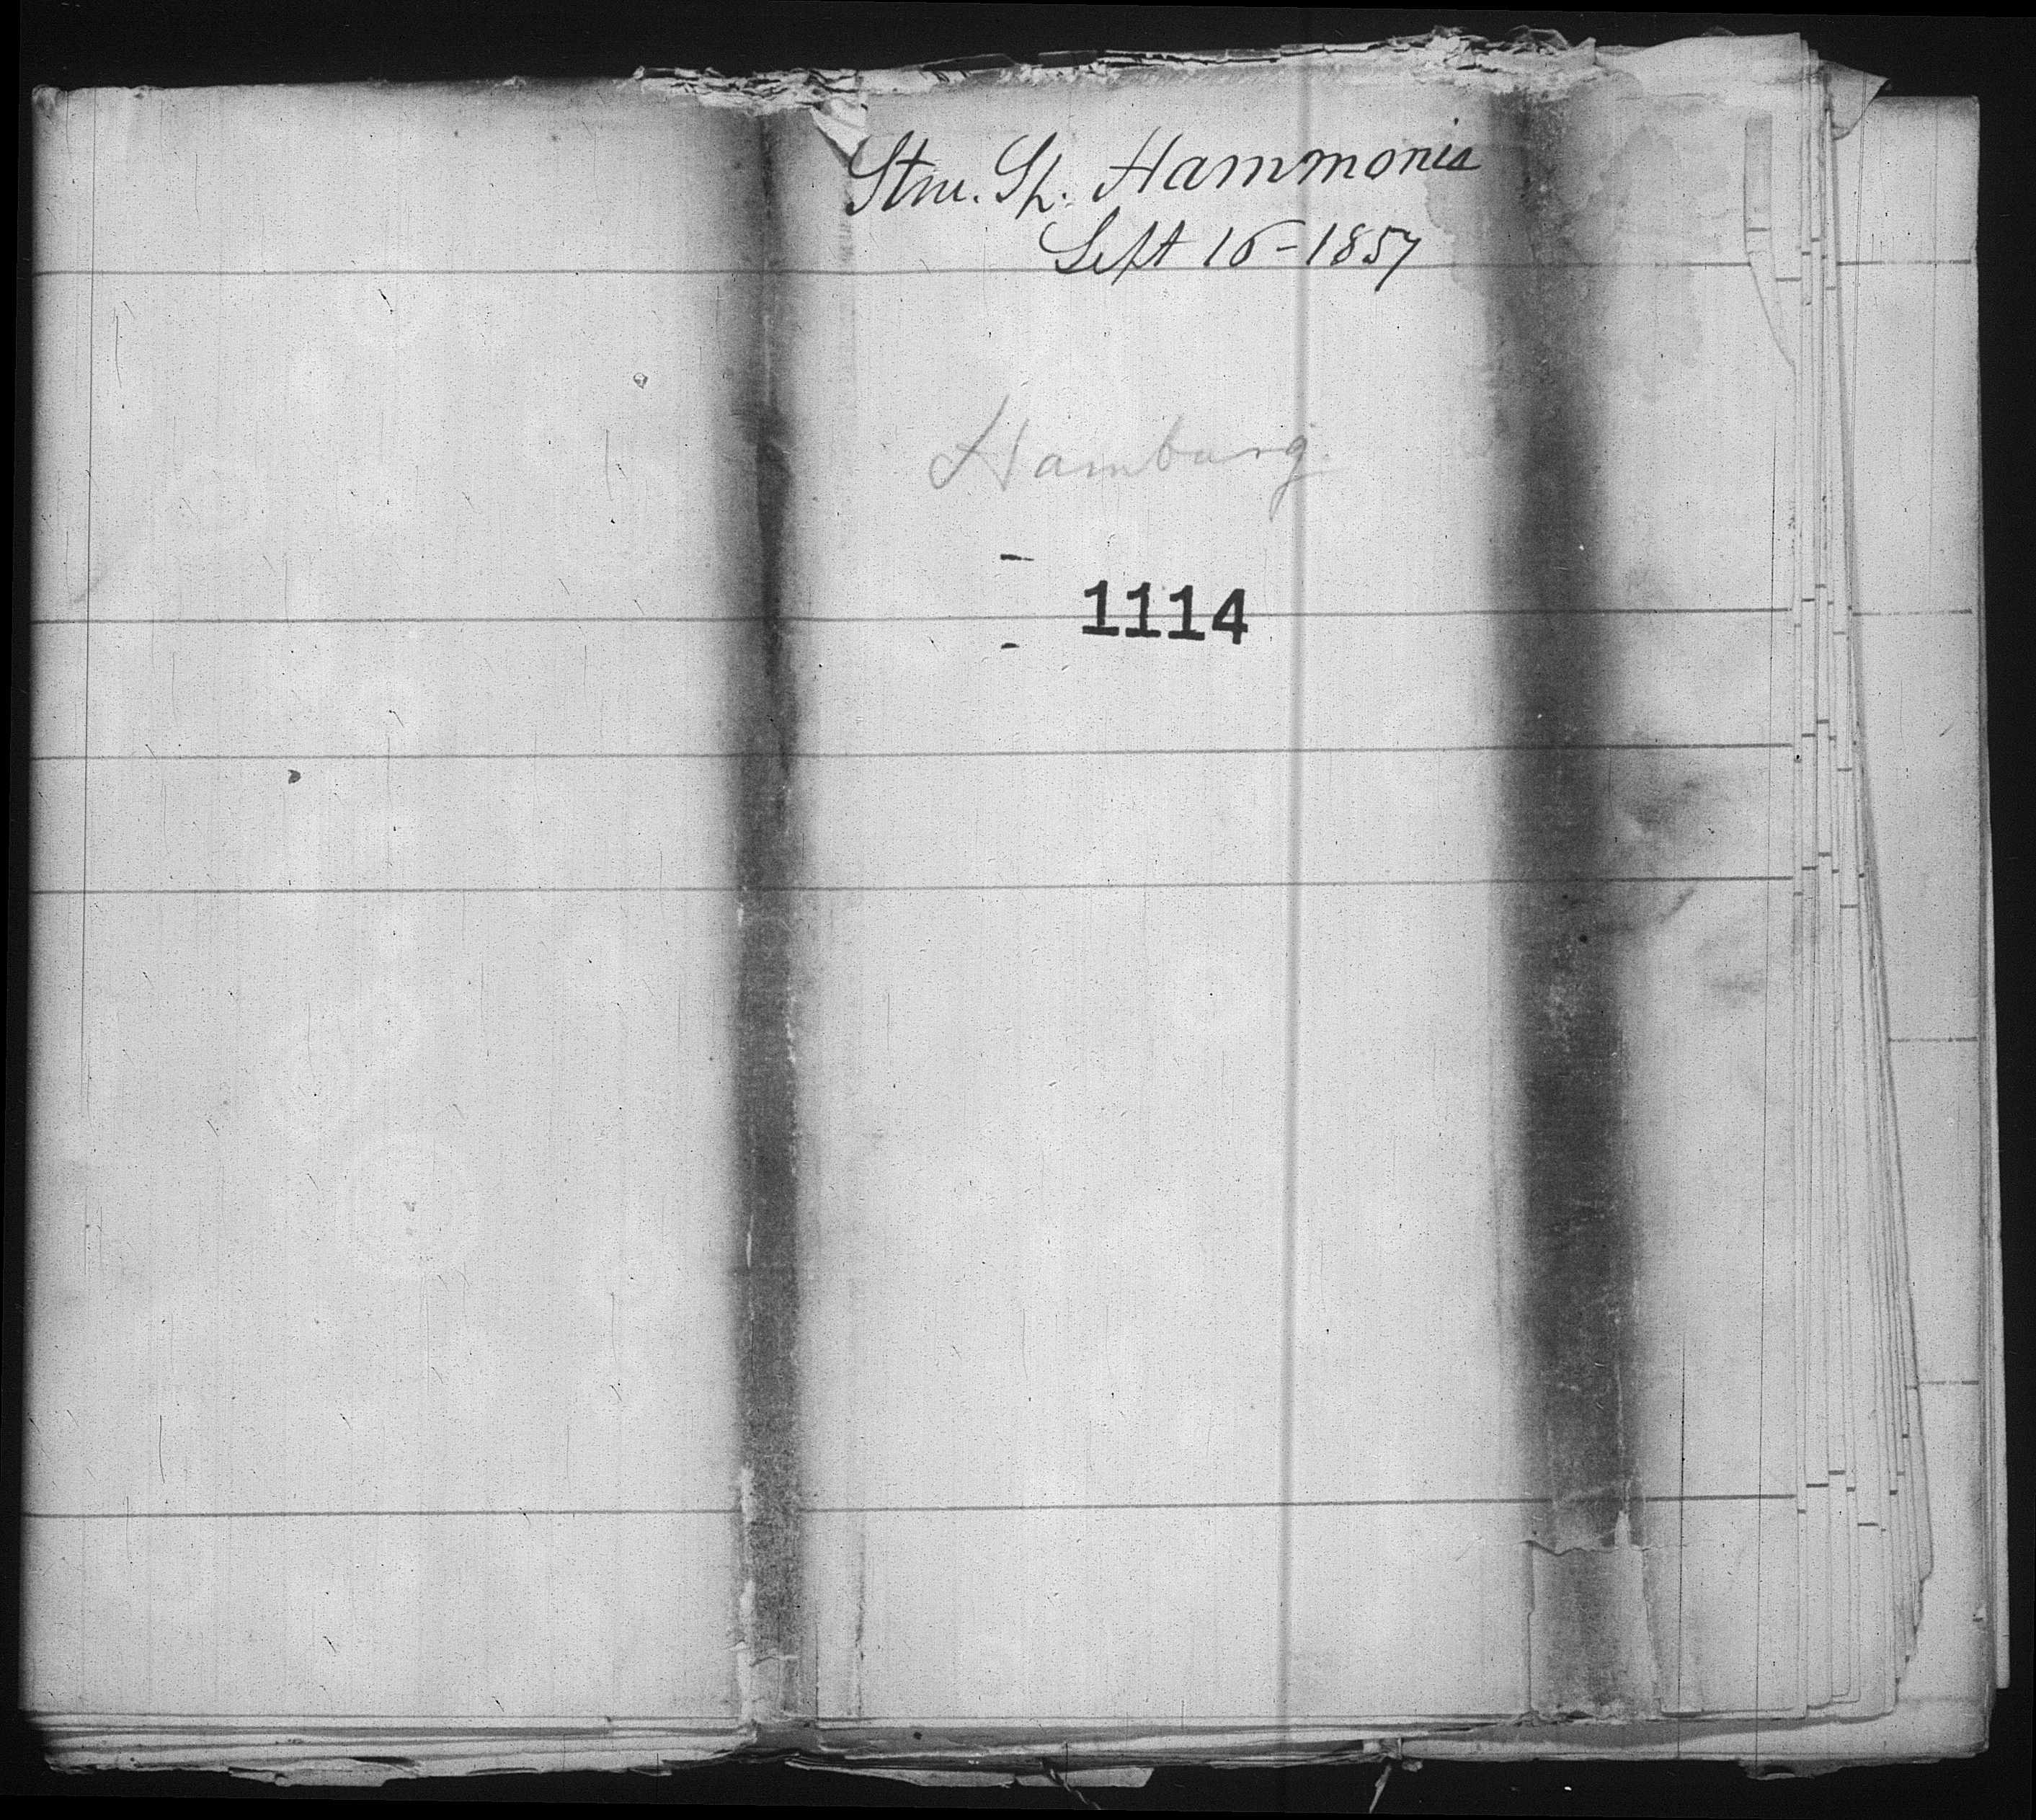 Stm. Sp. Hammonia
Sept 16-1857
Hamburg.
1114